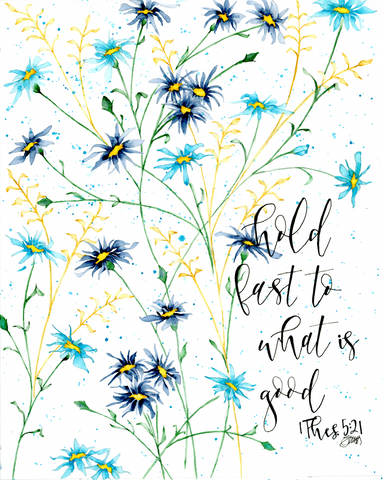 hold
fast to
what is
good
1 Thes 5:21